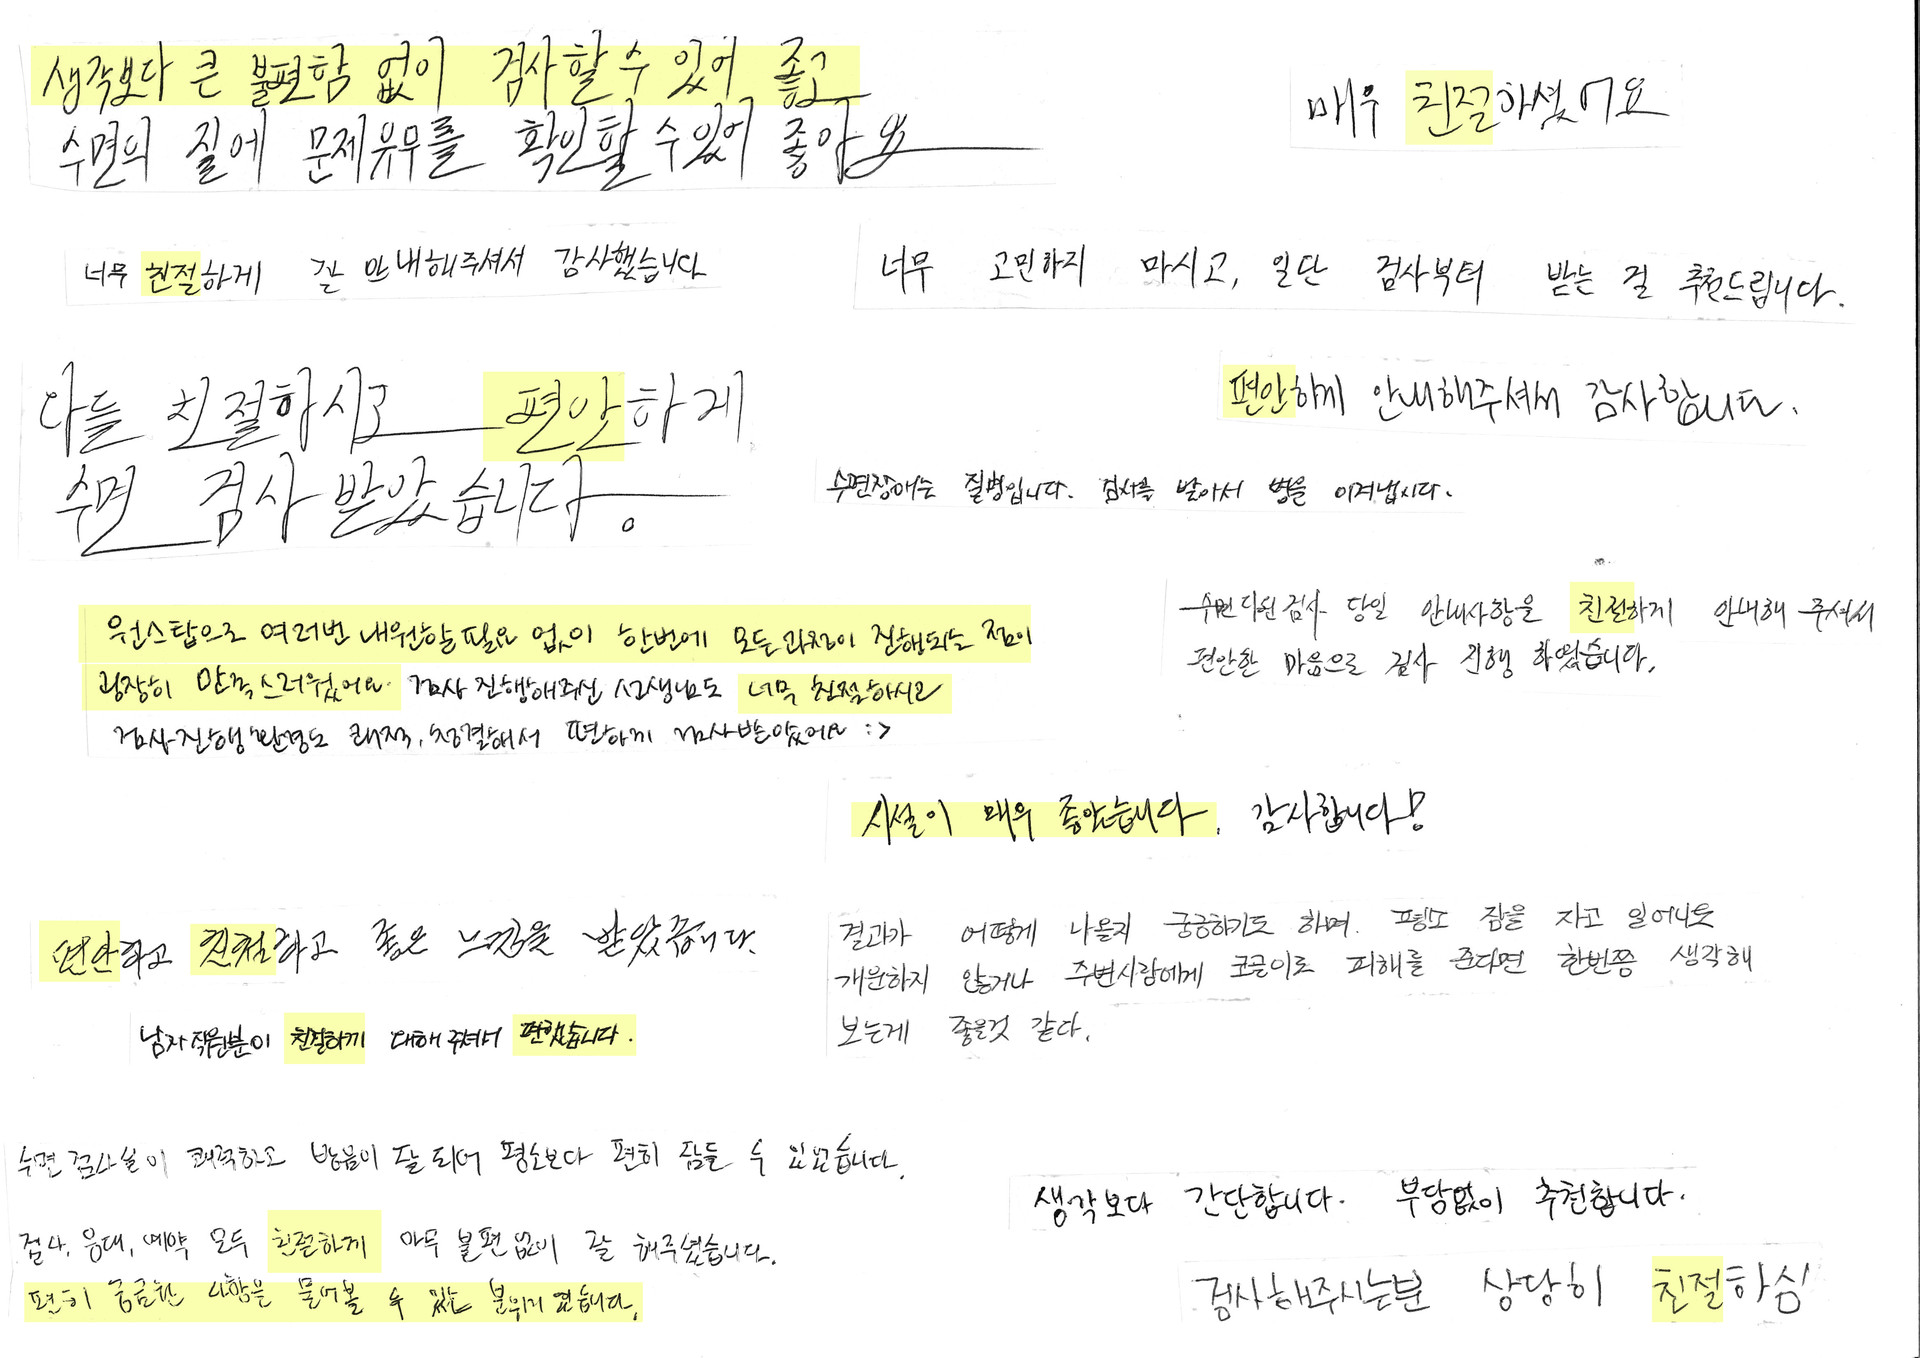 생각보다 큰 불편함 없이 검사할 수 있어 좋고
수면의 질에 문제유무를 확인할 수 있어 좋아요
매우 친절하셨어요
너무 친절하게 잘 안내해주셔서 감사했습니다
너무 고민하지 마시고, 일단 검사부터 받는 걸 추천드립니다.
다들 친절하시고 편안하게
수면 검사 받았습니다.
편안하게 안내해주셔서 감사합니다.
수면장애는 질병입니다. 검사를 받아서 병을 이겨냅시다.
원스탑으로 여러번 내원할 필요 없이 한번에 모든 과정이 진행되는 점이
굉장히 만족스러웠어요. 검사 진행해주신 선생님도 너무 친절하시고
검사 진행 환경도 쾌적, 청결해서 편하게 검사받았어요 :>
수면다원검사 당일 안내사항을 친절하게 안내해 주셔서
편안한 마음으로 검사 진행 하였습니다.
시설이 매우 좋았습니다. 감사합니다!
편안하고 친절하고 좋은 느낌을 받았습니다.
남자 직원분이 친절하게 대해 주셔서 편했습니다.
결과가 어떻게 나올지 궁금하기도 하며. 평소 잠을 자고 일어나도
개운하지 않거나 주변사람에게 코골이로 피해를 준다면 한번쯤 생각해
보는게 좋을것 같다.
수면검사실이 쾌적하고 방음이 잘 되어 평소보다 편히 잠들 수 있었습니다.
검사, 응대, 예약 모두 친절하게 아무 불편없이 잘 해주셨습니다.
편히 궁금한 사항을 물어볼 수 있는 분위기 였습니다.
생각보다 간단합니다. 부담없이 추천합니다.
검사해주시는분 상당히 친절하심